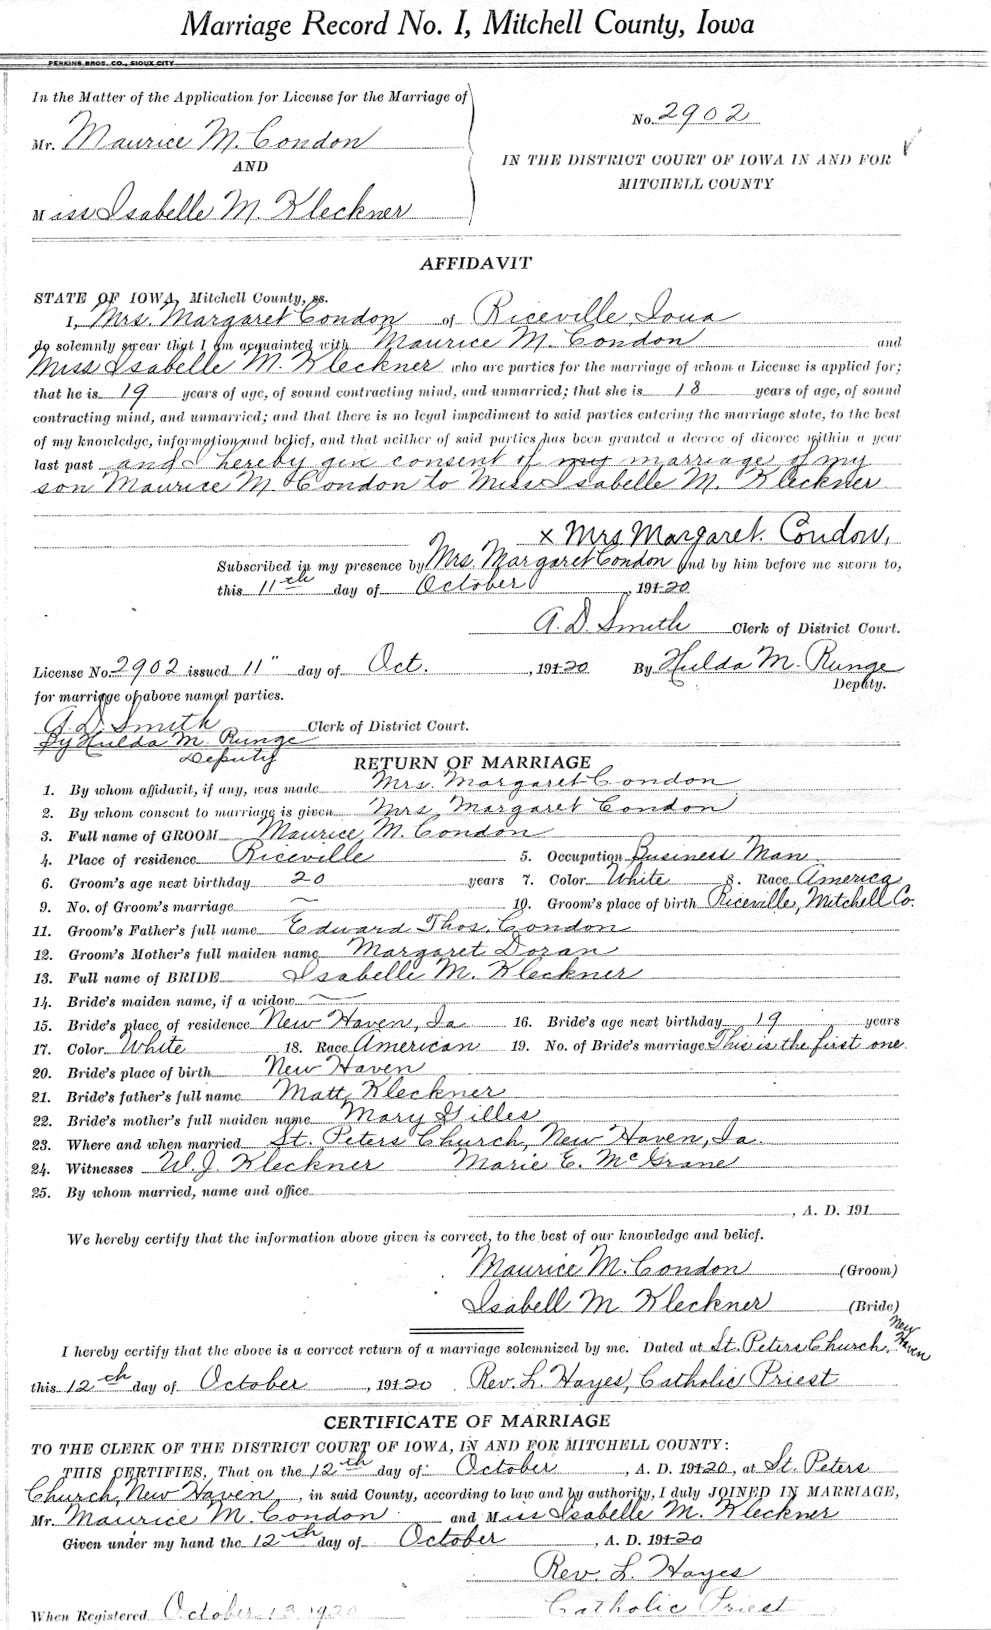 Marriage Record No. I, Mitchell County, Iowa
PERKINS BROS. CO., SIOUX CITY
In the Matter of the Application for License for the Marriage of
Mr. Maurice M. Condon
AND
Miss Isabelle M. Kleckner
No. 2902
IN THE DISTRICT COURT OF IOWA IN AND FOR
MITCHELL COUNTY
AFFIDAVIT
STATE OF IOWA, Mitchell County, ss.
I, Mrs. Margaret Condon of Riceville, Iowa
do solemnly swear that I am acquainted with Maurice M. Condon and
Miss Isabelle M. Kleckner who are parties for the marriage of whom a License is applied for;
that he is 19 years of age, of sound contracting mind, and unmarried; that she is 18 years of age, of sound
contracting mind, and unmarried; and that there is no legal impediment to said parties entering the marriage state, to the best
of my knowledge, information and belief, and that neither of said parties has been granted a decree of divorce within a year
last past and I hereby give consent of my marriage of my
son Maurice M. Condon to Miss Isabelle M. Kleckner
x Mrs Margaret. Condon,
Subscribed in my presence by Mrs. Margaret Condon and by him before me sworn to,
this 11th day of October, 19120
A. D. Smith Clerk of District Court.
License No. 2902 issued 11" day of Oct., 19120 By Hulda M. Runge
for marriage of above named parties. Deputy.
A. D. Smith Clerk of District Court.
By Hulda M. Runge
Deputy
RETURN OF MARRIAGE
1. By whom affidavit, if any, was made Mrs. Margaret Condon
2. By whom consent to marriage is given Mrs. Margaret Condon
3. Full name of GROOM Maurice M. Condon
4. Place of residence Riceville 5. Occupation Business Man
6. Groom's age next birthday 20 years 7. Color White 8. Race America
9. No. of Groom's marriage — 10. Groom's place of birth Riceville, Mitchell Co.
11. Groom's Father's full name Edward Thos. Condon
12. Groom's Mother's full maiden name Margaret Doran
13. Full name of BRIDE Isabelle M. Kleckner
14. Bride's maiden name, if a widow —
15. Bride's place of residence New Haven, Ia 16. Bride's age next birthday 19 years
17. Color White 18. Race American 19. No. of Bride's marriage This is the first one.
20. Bride's place of birth New Haven
21. Bride's father's full name Matt Kleckner
22. Bride's mother's full maiden name Mary Gilles
23. Where and when married St. Peters Church, New Haven, Ia.
24. Witnesses W. J. Kleckner Marie E. McGrane
25. By whom married, name and office
, A. D. 191
We hereby certify that the information above given is correct, to the best of our knowledge and belief.
Maurice M. Condon (Groom)
Isabell M Kleckner (Bride)
I hereby certify that the above is a correct return of a marriage solemnized by me. Dated at St. Peters Church, New Haven
this 12th day of October, 19120 Rev. L. Hayes, Catholic Priest
CERTIFICATE OF MARRIAGE
TO THE CLERK OF THE DISTRICT COURT OF IOWA, IN AND FOR MITCHELL COUNTY:
THIS CERTIFIES, That on the 12th day of October, A. D. 19120, at St. Peters
Church, New Haven, in said County, according to law and by authority, I duly JOINED IN MARRIAGE,
Mr. Maurice M. Condon and Miss Isabelle M. Kleckner
Given under my hand the 12th day of October, A. D. 19120
Rev. L. Hayes
When Registered October 13, 1920 Catholic Priest